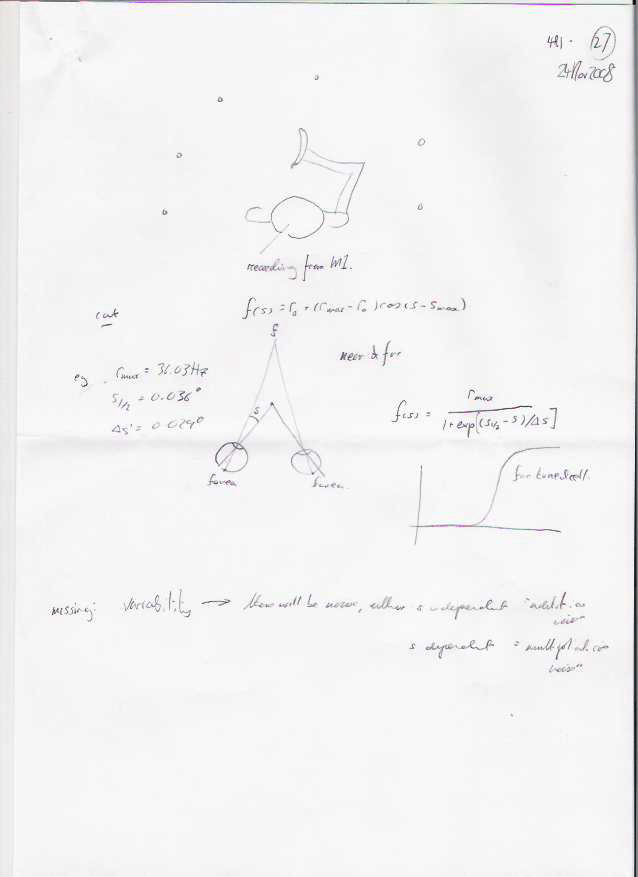 481. 27
24 Nov 2008
recording from M1.
f(s) = r₀ + (r_max - r₀) cos(s - s_max)
cat
near & far
f
eg. r_max = 36.03Hz
s_1/2 = 0.036°
Δs = 0.029°
s
f(s) = r_max / 1 + exp[(s_1/2 - s)/Δs]
fovea
fovea.
far tuned cell.
missing: variability → there will be noise, either s independent "additive
noise"
s dependent = multiplicative
noise"